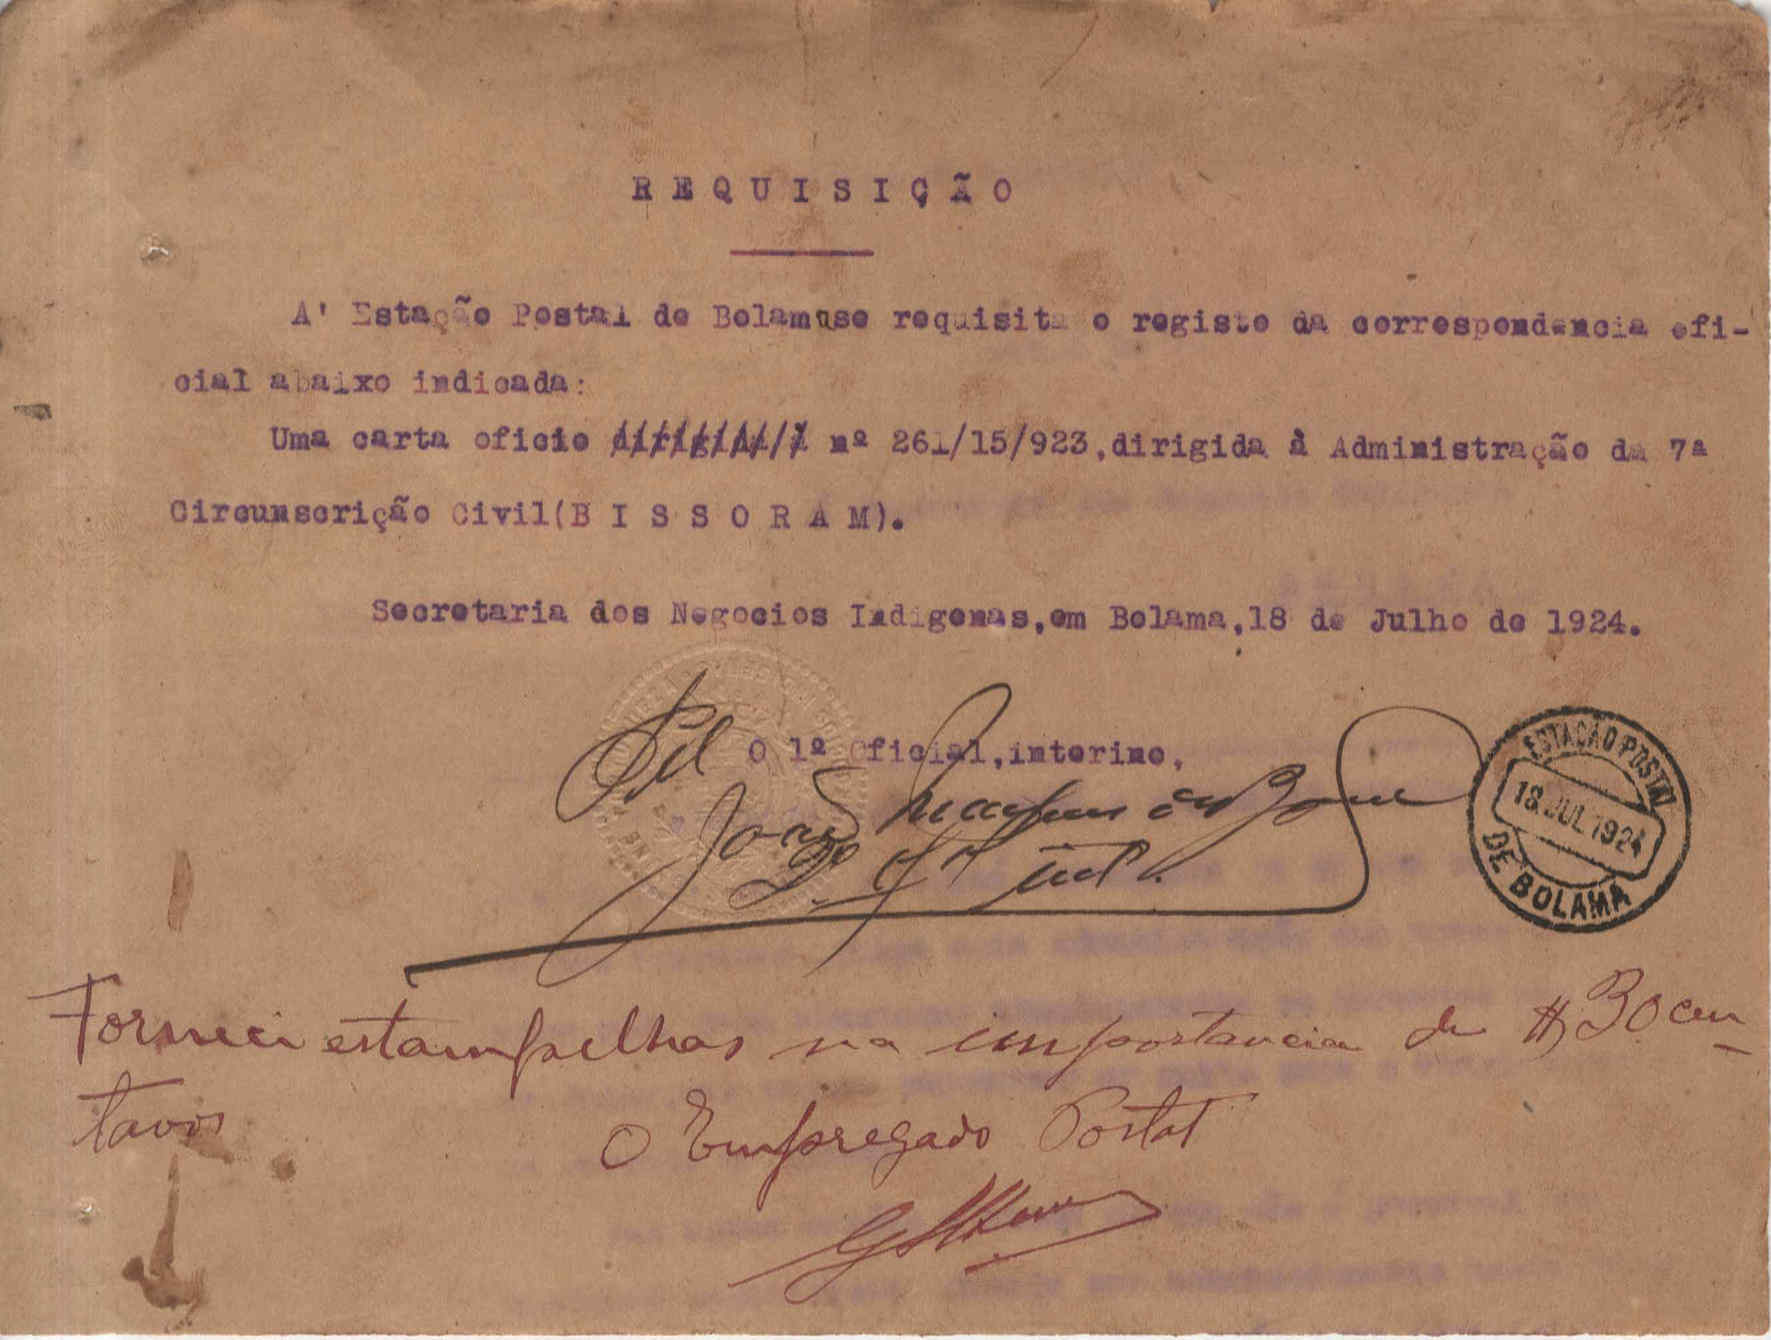 REQUISIÇÃO
A' Estação Postal de Bolama se requisita o registo da correspondencia ofi-
cial abaixo indicada:
Uma carta oficio nº 261/15/923, dirigida à Administração da 7ª
Circumscrição Civil (BISSORAM).
Secretaria dos Negocios Indigenas, em Bolama, 18 de Julho de 1924.
Pel O 1º Oficial, interino,
João
2º
ESTAÇÃO POSTAL
18 JUL 1924
DE BOLAMA
Forneci estampilhas na importancia de $30 cen-
tavos
O Empregado Postal